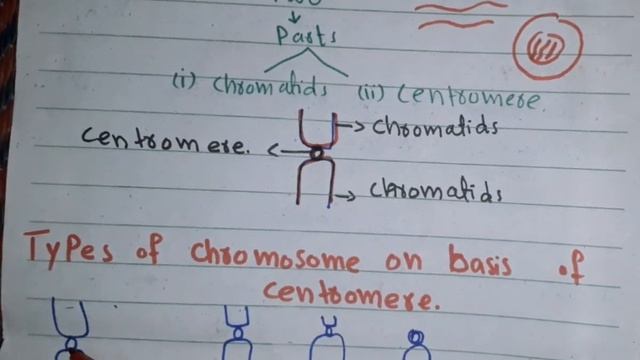 Parts
(i) Chromatids (ii) Centromere.
Centromere. Chromatids
Chromatids
Types of chromosome on basis of
centromere.